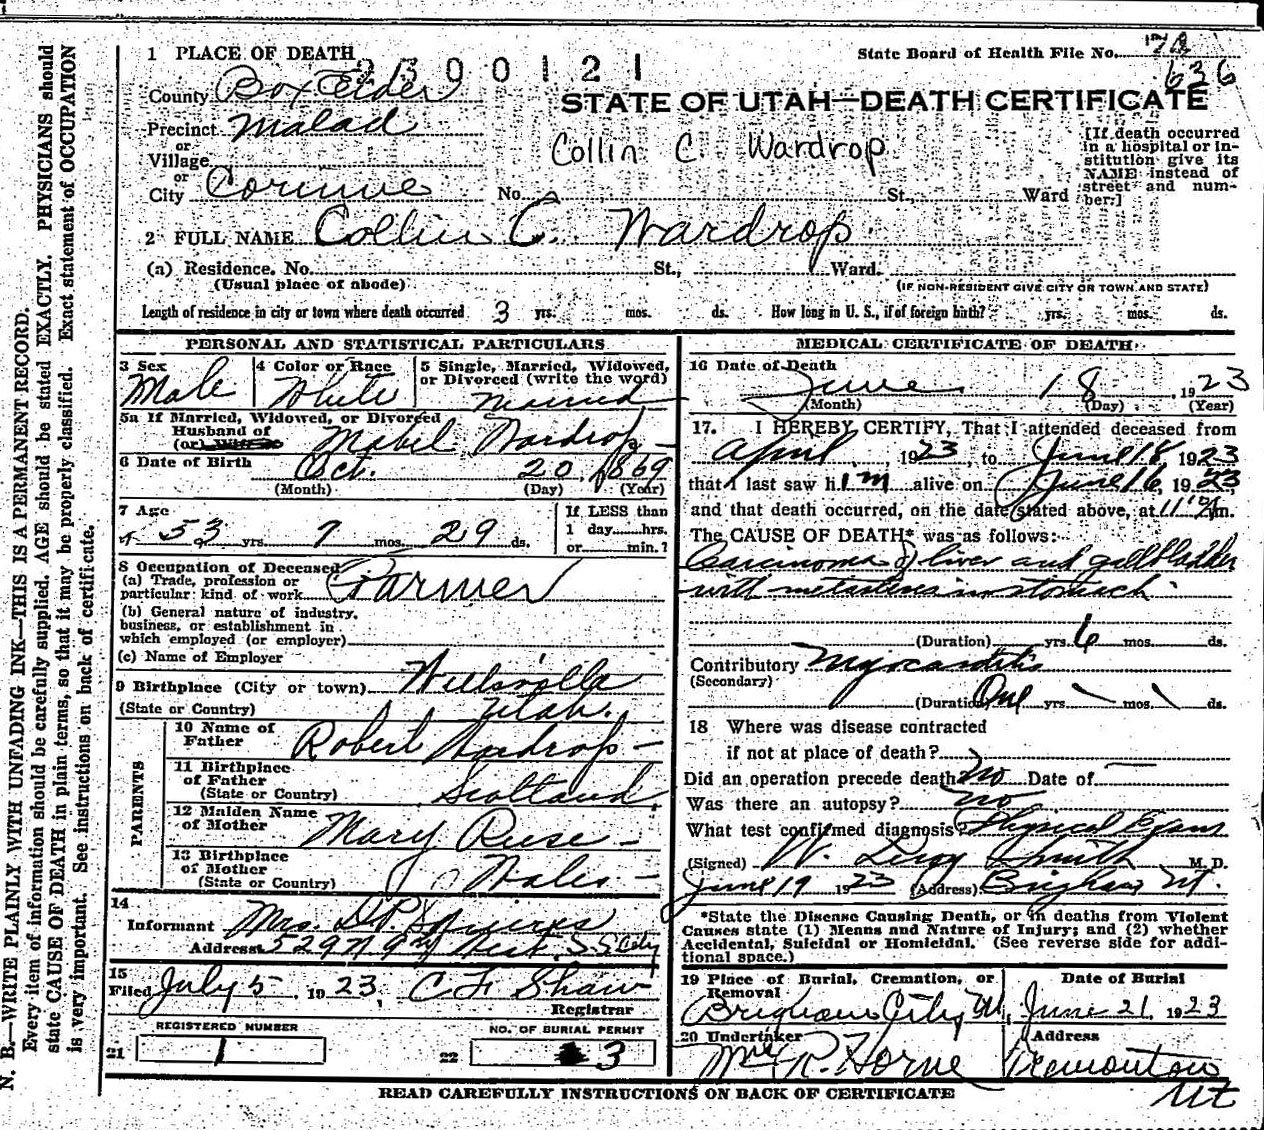 1 PLACE OF DEATH
2300121
State Board of Health File No. 78
636
County Box Elder
STATE OF UTAH—DEATH CERTIFICATE
Precinct Malad
or
Village
or
City Corinne No. St., Ward
Collin C. Wardrop
[If death occurred in a hospital or institution give its NAME instead of street and number.]
2 FULL NAME Collin C. Wardrop
(a) Residence. No. St., Ward.
(Usual place of abode)
(IF NON-RESIDENT GIVE CITY OR TOWN AND STATE)
Length of residence in city or town where death occurred 3 yrs. mos. ds. How long in U. S., if of foreign birth? yrs. mos. ds.
PERSONAL AND STATISTICAL PARTICULARS
3 Sex
Male
4 Color or Race
White
5 Single, Married, Widowed, or Divorced (write the word)
Married
5a If Married, Widowed, or Divorced
Husband of
(or)
Mabel Wardrop
6 Date of Birth Oct. 20, 1869
(Month) (Day) (Year)
7 Age
53 yrs. 7 mos. 29 ds.
If LESS than
1 day......hrs.
or......min.?
8 Occupation of Deceased
(a) Trade, profession or
particular kind of work Farmer
(b) General nature of industry,
business, or establishment in
which employed (or employer)
(c) Name of Employer
9 Birthplace (City or town) Wellsville
(State or Country) Utah.
PARENTS
10 Name of Father Robert Wardrop
11 Birthplace of Father
(State or Country) Scotland
12 Maiden Name of Mother Mary Reese
13 Birthplace of Mother
(State or Country) Wales
14
Informant Mrs. D.P. Squires
Address 529 N. 9th West. S S City
15
Filed July 5, 1923, C F Shaw
Registrar
REGISTERED NUMBER
21 1
NO. OF BURIAL PERMIT
22 3
MEDICAL CERTIFICATE OF DEATH
16 Date of Death
June 18, 1923
(Month) (Day) (Year)
17. I HEREBY CERTIFY, That I attended deceased from
April, 1923, to June 18 1923
that I last saw him alive on June 16, 1923,
and that death occurred, on the date stated above, at 11 m.
The CAUSE OF DEATH* was as follows:
Carcinoma of liver and gallbladder
with metastasis in stomach
(Duration) yrs. 6 mos. ds.
Contributory Myocarditis
(Secondary)
(Duration) One yrs. mos. ds.
18 Where was disease contracted
if not at place of death?
Did an operation precede death No Date of
Was there an autopsy? no
What test confirmed diagnosis? Physical Exam
(Signed) W. Leroy Smith M. D.
June 19 1923 (Address) Brigham Ut.
*State the Disease Causing Death, or in deaths from Violent
Causes state (1) Means and Nature of Injury; and (2) whether
Accidental, Suicidal or Homicidal. (See reverse side for addi-
tional space.)
19 Place of Burial, Cremation, or Removal
Brigham City, Ut.
Date of Burial
June 21, 1923
20 Undertaker
R. Horne
Address
Tremonton
Ut
READ CAREFULLY INSTRUCTIONS ON BACK OF CERTIFICATE
N. B.—WRITE PLAINLY WITH UNFADING INK—THIS IS A PERMANENT RECORD.
Every item of information should be carefully supplied. AGE should be stated EXACTLY. PHYSICIANS should
state CAUSE OF DEATH in plain terms, so that it may be properly classified. Exact statement of OCCUPATION
is very important. See instructions on back of certificate.